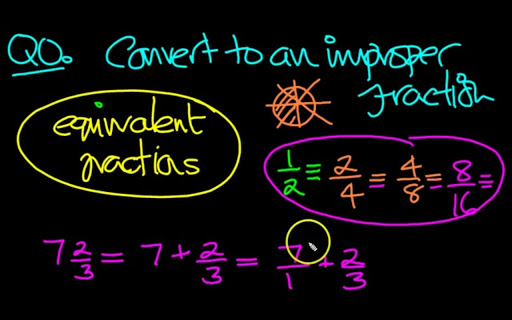 QO. Convert to an improper
fraction
equivalent
fractions
1/2 ≡ 2/4 = 4/8 = 8/16 =
7 2/3 = 7 + 2/3 = 7/1 + 2/3